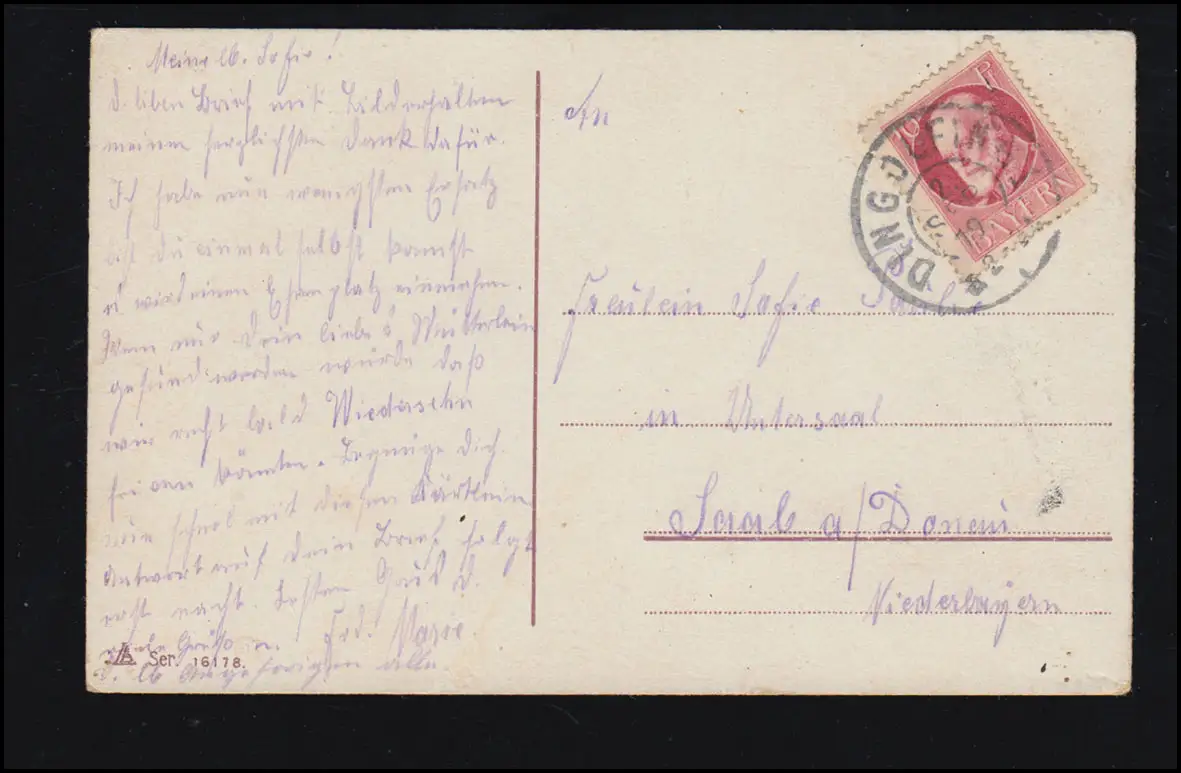 Meine lb. Sofie!
d. liben Brief mit Bild erhalten
meinen herzlichsten Dank dafür.
Ich habe nun wenigsten Ersatz
bist du einmal selbst kommst
u wird einen Ehrenplatz einnehmen.
Wenn nur Dein liebes Mutterlein
gesund werden würde daß
wir recht bald Wiedersehn
feiern könnten. Begnüge dich
nun schnel mit diesen Kärtlein
Antwort auf dein Brief folgt
erst nacht. Besten Gruß d.
Frd. Marie.
viele Grüße an
d. lb Angehörigen alle.
Ser. 16178.
An
Freulein Sofie
in Untersaal
Saal a/Donau
Niederbayern
10 Pf
BAYERN
DINGOLFING